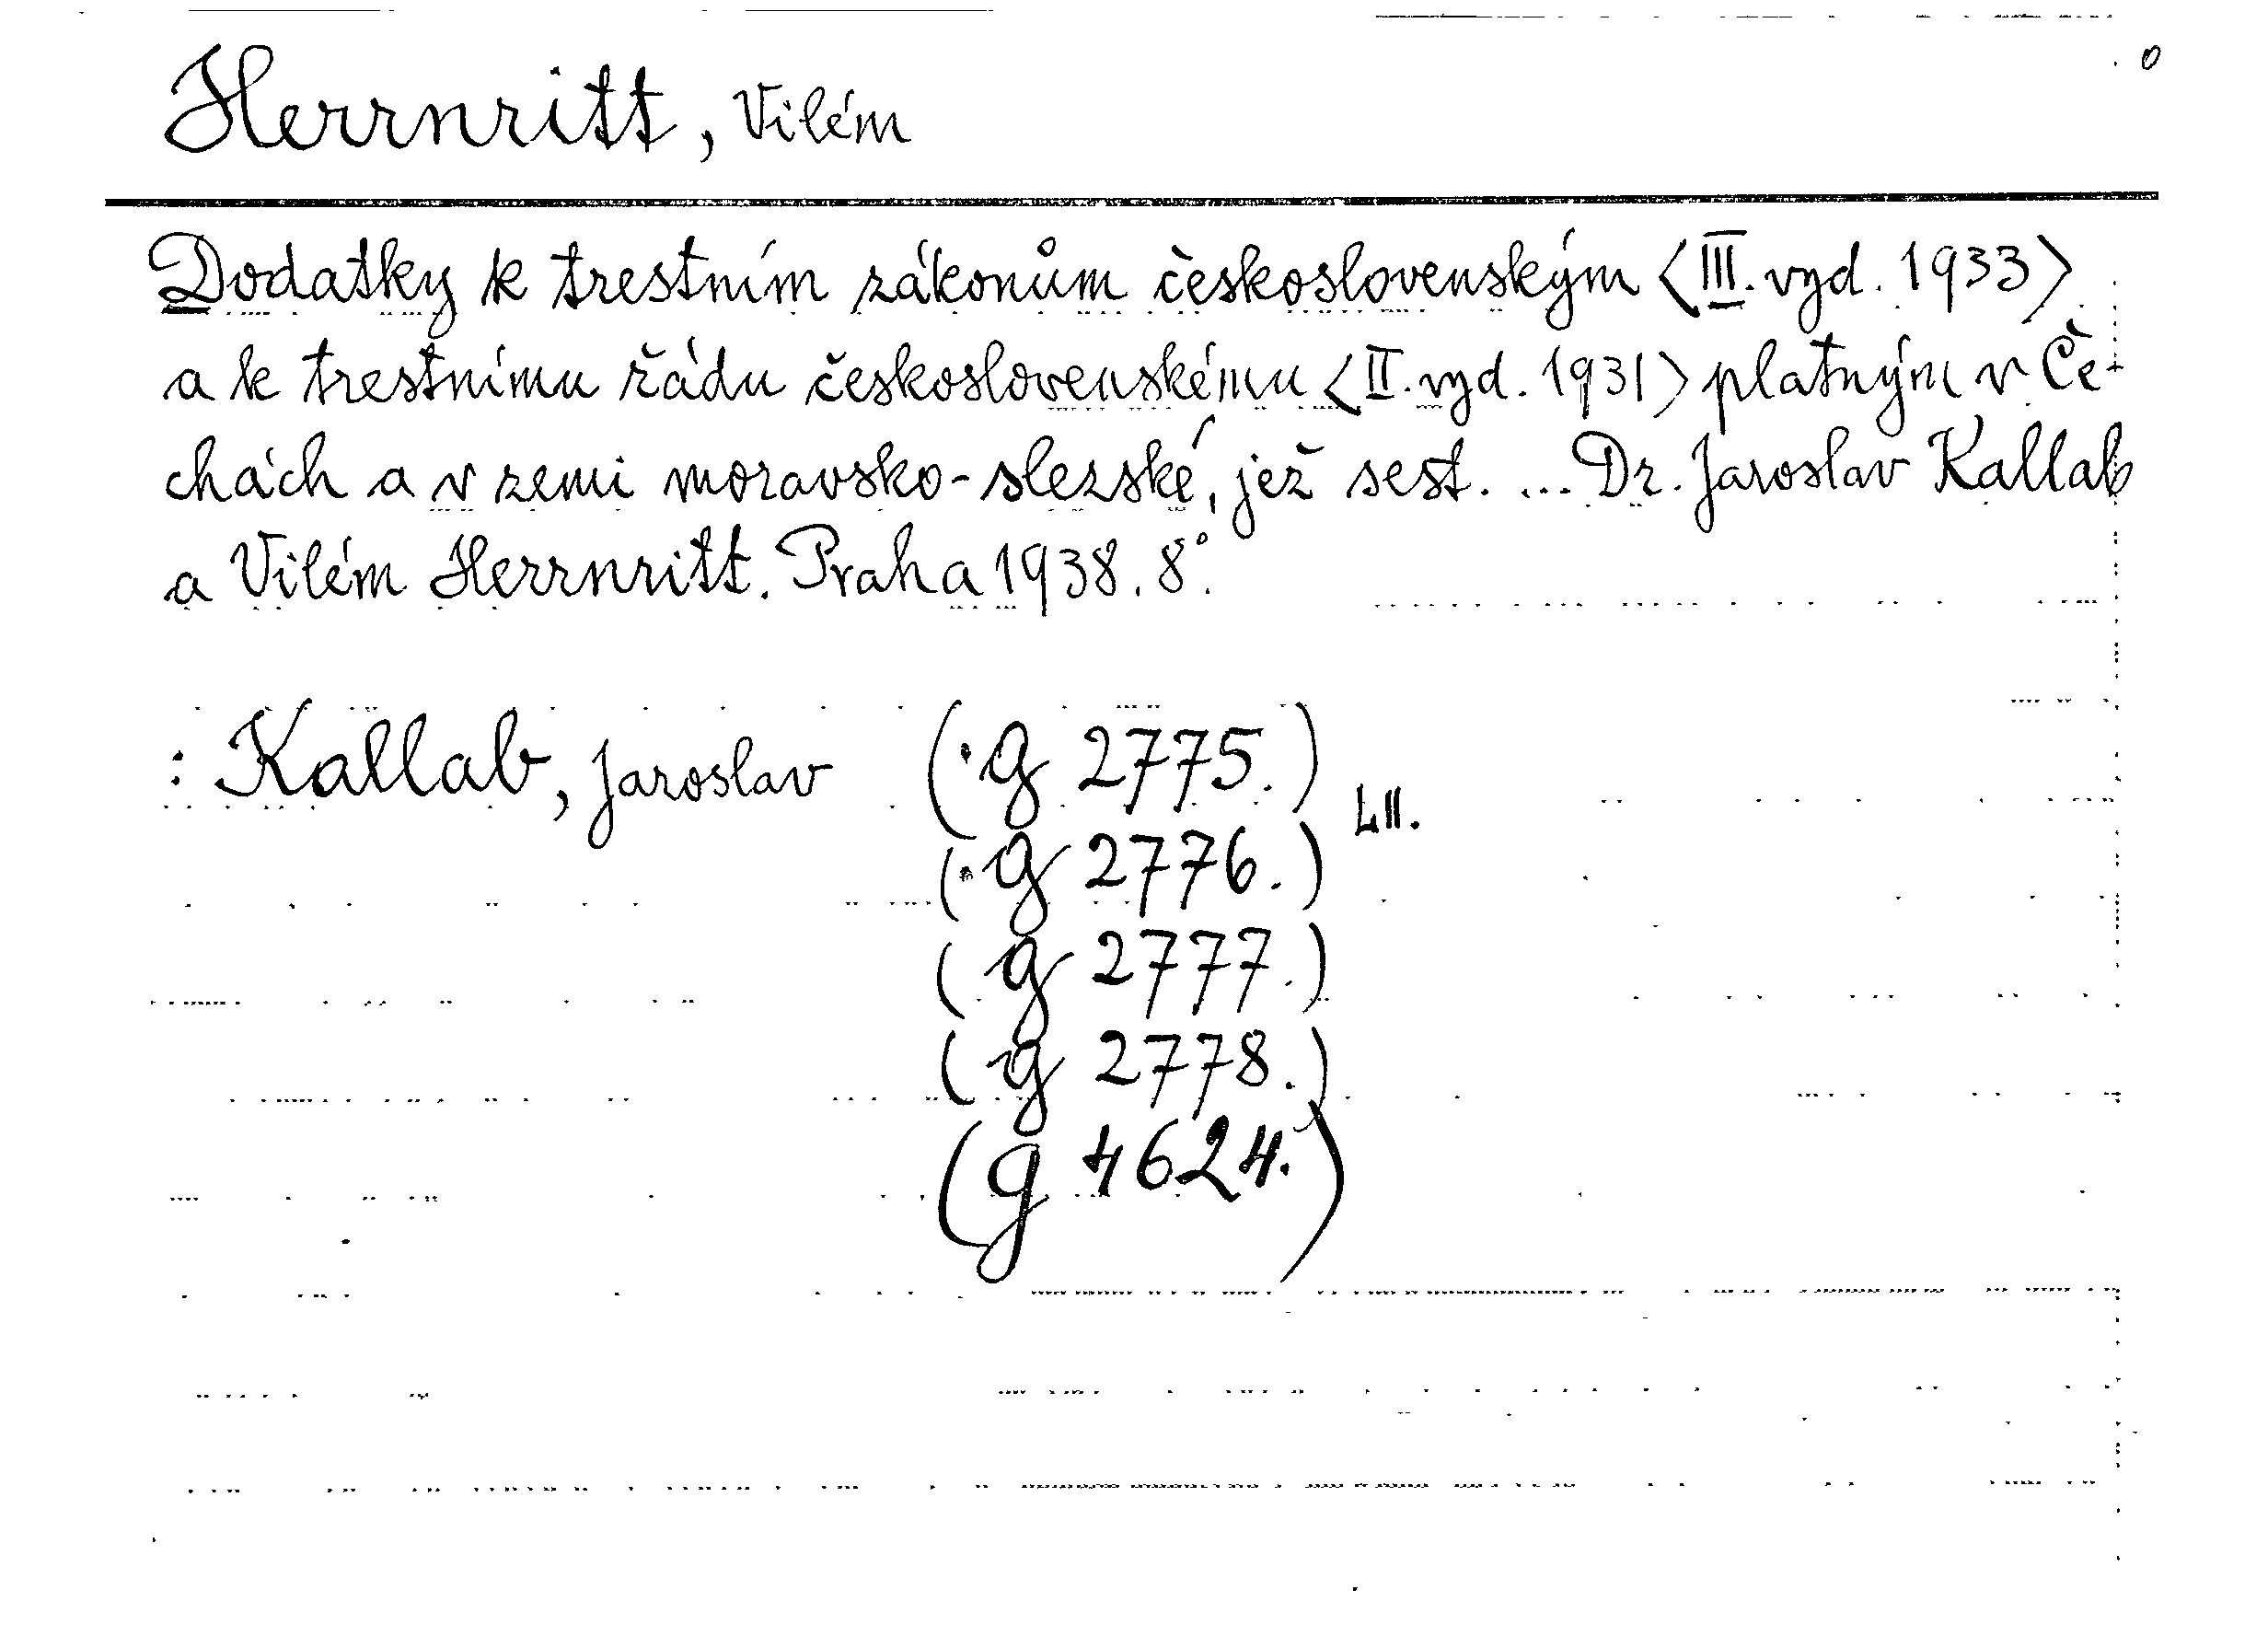 0
Herrnritt, Vilém
Dodatky k trestním zákonům československým <III. vyd. 1933>
a k trestnímu řádu československému <II. vyd. 1931> platným v Če-
chách a v zemi moravsko-slezské, jež sest. ... Dr. Jaroslav Kallab
a Vilém Herrnritt. Praha 1938. 8°.
: Kallab, Jaroslav (· g 2775.)
LII.
(· g 2776.)
( g 2777.)
( g 2778.)
(g 4624.)